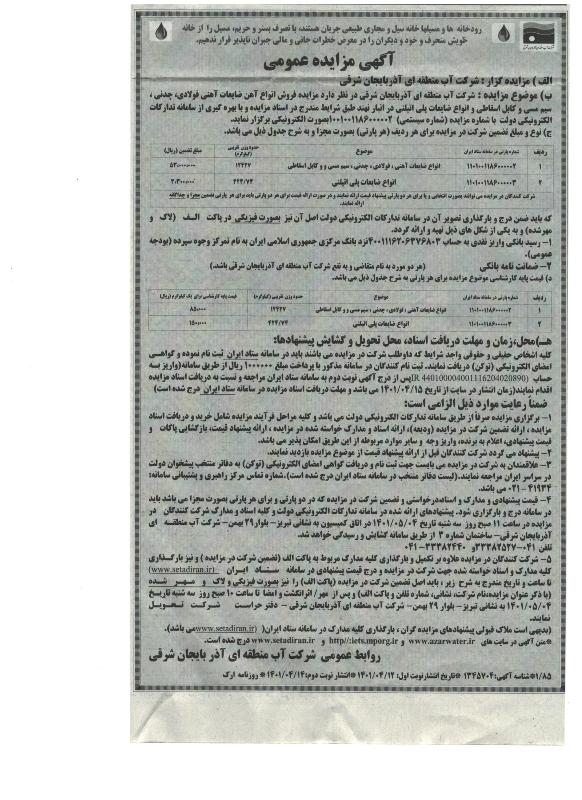 رودخانه ها و مسیلها خانه سیل و مجاری طبیعی جریان هستند، با تصرف بستر و حریم، مسیل را از خانه
خویش منحرف و خود و دیگران را در معرض خطرات جانی و مالی جبران ناپذیر قرار ندهیم.
آگهی مزایده عمومی
الف ) مزایده گزار : شرکت آب منطقه ای آذربایجان شرقی
ب) موضوع مزایده : شرکت آب منطقه ای آذربایجان شرقی در نظر دارد مزایده فروش انواع آهن ضایعات آهنی فولادی، چدنی ،
سیم مسی و کابل اسقاطی و انواع ضایعات پلی اتیلنی در انبار نهند طبق شرایط مندرج در اسناد مزایده و با بهره گیری از سامانه تدارکات
الکترونیکی دولت با شماره مزایده (شماره سیستمی) ۱۰۰۱۰۰۱۱۸۶۰۰۰۰۰۲ بصورت الکترونیکی برگزار نماید.
ج) نوع و مبلغ تضمین شرکت در مزایده برای هر ردیف (هر پارتی) بصورت مجزا و به شرح جدول ذیل می باشد.
ردیف شماره پارتی در سامانه ستاد ایران موضوع حدود وزن تقریبی (کیلوگرم) مبلغ تضمین (ریال)
۱ ۱۱۰۱۰۰۱۱۸۶۰۰۰۰۰۲ انواع ضایعات آهنی ، فولادی ، چدنی ، سیم مسی و کابل اسقاطی ۱۲۴۲۷
۲ ۱۱۰۱۰۰۱۱۸۶۰۰۰۰۰۳ انواع ضایعات پلی اتیلنی ۴۲۴/۷۴
شرکت کنندگان در مزایده می توانند بصورت انتخابی و یا برای هر دو پارتی پیشنهاد قیمت ارائه نمایند و در صورت ارائه قیمت برای هر دو پارتی باید برای هر پارتی تضمین مجزا و جداگانه
ارائه نمایند.
که باید ضمن درج و بارگذاری تصویر آن در سامانه تدارکات الکترونیکی دولت اصل آن نیز بصورت فیزیکی در پاکت الف (لاک و
مهر شده) و به یکی از شکل های ذیل تهیه و ارائه گردد.
۱- رسید بانکی واریز نقدی به حساب ۴۰۰۱۱۱۶۲۰۶۳۷۶۸۰۳ نزد بانک مرکزی جمهوری اسلامی ایران به نام تمرکز وجوه سپرده (بودجه
عمومی).
۲- ضمانت نامه بانکی (هر دو مورد به نام متقاضی و به نفع شرکت آب منطقه ای آذربایجان شرقی باشد.)
د) قیمت پایه کارشناسی موضوع مزایده برای هر پارتی به شرح جدول ذیل می باشد.
ردیف شماره پارتی در سامانه ستاد ایران موضوع حدود وزن تقریبی (کیلوگرم) قیمت پایه کارشناسی برای یک کیلوگرم (ریال)
۱ ۱۱۰۱۰۰۱۱۸۶۰۰۰۰۰۲ انواع ضایعات آهنی ، فولادی ، چدنی ، سیم مسی و کابل اسقاطی ۱۲۴۲۷ ۸۵۰۰۰
۲ ۱۱۰۱۰۰۱۱۸۶۰۰۰۰۰۳ انواع ضایعات پلی اتیلنی ۴۲۴/۷۴ ۱۵۰۰۰۰
هـ) محل، زمان و مهلت دریافت اسناد، محل تحویل و گشایش پیشنهادها:
کلیه اشخاص حقیقی و حقوقی واجد شرایط که داوطلب شرکت در مزایده می باشند باید در سامانه ستاد ایران ثبت نام نموده و گواهی
امضای الکترونیکی (توکن) دریافت نمایند. ثبت نام کنندگان در سامانه مذکور با پرداخت مبلغ ۱۰۰۰۰۰۰ ریال از طریق سامانه (واریز به
حساب IR 440100004001116204020890) پس از درج آگهی نوبت دوم به سامانه ستاد ایران مراجعه و نسبت به دریافت اسناد مزایده
اقدام نمایند (زمان انتشار در سایت از تاریخ ۱۴۰۱/۰۴/۱۵ می باشد و مهلت دریافت اسناد مزایده در سامانه ستاد ایران درج شده است)
ضمناً رعایت موارد ذیل الزامی است:
۱- برگزاری مزایده صرفاً از طریق سامانه تدارکات الکترونیکی دولت می باشد و کلیه مراحل فرآیند مزایده شامل خرید و دریافت اسناد
مزایده ، ارائه تضمین شرکت در مزایده (ودیعه)، ارائه اسناد و مدارک خواسته شده در مزایده ، ارائه پیشنهاد قیمت، بازگشایی پاکات و
قیمت پیشنهادی، اعلام به برنده، واریز وجه و سایر موارد مربوطه از این طریق امکان پذیر می باشد.
۲- پیشنهاد می گردد شرکت کنندگان قبل از ارائه پیشنهاد قیمت از موضوع مزایده بازدید نمایند.
۳- علاقمندان به شرکت در مزایده می بایست جهت ثبت نام و دریافت گواهی امضای الکترونیکی (توکن) به دفاتر منتخب پیشخوان دولت
در سراسر ایران مراجعه نمایند. (لیست دفاتر منتخب در سامانه ستاد ایران درج شده است). شماره تماس مرکز راهبری و پشتیبانی سامانه:
۴۱۹۳۴ - ۰۲۱ می باشد.
۴- قیمت پیشنهادی و مدارک و اسناد درخواستی و تضمین شرکت در مزایده که در دو پارتی و برای هر پارتی بصورت مجزا می باشد باید
در سامانه درج و بارگزاری شود. پیشنهادهای ارائه شده در سامانه تدارکات الکترونیکی دولت و کلیه اسناد و مدارک شرکت کنندگان در
مزایده در ساعت ۱۱ صبح روز سه شنبه تاریخ ۱۴۰۱/۰۵/۰۴ در اتاق کمیسیون به نشانی تبریز- بلوار ۲۹ بهمن- شرکت آب منطقه ای
آذربایجان شرقی- ساختمان شماره ۳ از طریق سامانه گشایش و رسیدگی خواهد شد.
تلفن ۰۴۱-۳۳۳۸۲۵۲۷ و ۳۳۳۸۲۴۴۰-۰۴۱
۵- شرکت کنندگان در مزایده علاوه بر تکمیل و بارگذاری کلیه مدارک مربوط به پاکت الف (تضمین شرکت در مزایده ) و نیز بارگذاری
کلیه مدارک و اسناد خواسته شده جهت شرکت در مزایده و درج قیمت پیشنهادی در سامانه ستاد ایران (www.setadiran.ir)
تا ساعت و تاریخ مندرج به شرح زیر ، باید اصل تضمین شرکت در مزایده (پاکت الف) را نیز بصورت فیزیکی و لاک و مهر شده
(با ذکر عنوان مزایده، نام شرکت، نشانی، شماره تلفن و پاکت الف) و پس از مهر/ اثرانگشت و امضا تا ساعت ۱۰ صبح روز سه شنبه تاریخ
۱۴۰۱/۰۵/۰۴ به نشانی تبریز- بلوار ۲۹ بهمن- شرکت آب منطقه ای آذربایجان شرقی - دفتر حراست شرکت تحویل
نمایند.
(بدیهی است ملاک قبولی پیشنهادهای مزایده گران ، بارگذاری کلیه مدارک در سامانه ستاد ایران (www.setadiran.ir) می باشد).
*متن آگهی در سایت های www.azarwater.ir و http//:iets.mporg.ir و www.setadiran.ir درج شده است.
روابط عمومی شرکت آب منطقه ای آذربایجان شرقی
۱/۸۵*شناسه آگهی: ۱۳۴۵۷۰۴ *تاریخ انتشار نوبت اول: ۱۴۰۱/۰۴/۱۲ *انتشار نوبت دوم: ۱۴۰۱/۰۴/۱۴ * روزنامه ارک